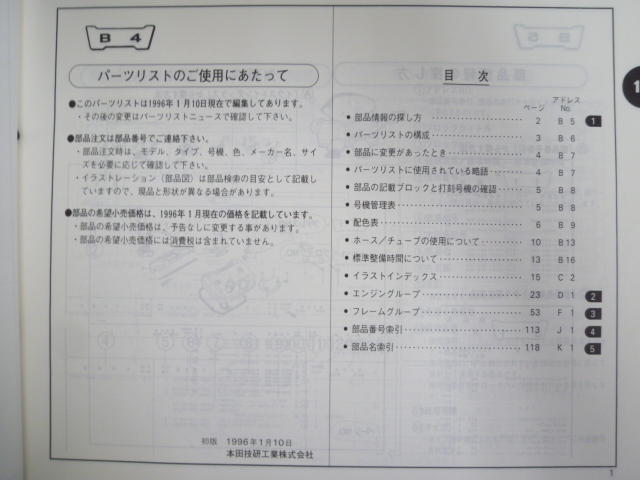 B 4
パーツリストのご使用にあたって
●このパーツリストは1996年1月10日現在で編集してあります。
・その後の変更はパーツリストニュースで確認して下さい。
●部品注文は部品番号でご連絡下さい。
・部品注文時は、モデル、タイプ、号機、色、メーカー名、サイ
ズを必要に応じて確認して下さい。
・イラストレーション（部品図）は部品検索の目安として記載し
ていますので、現品と形状が異なる場合があります。
●部品の希望小売価格は、1996年1月現在の価格を記載しています。
・部品の希望小売価格は、予告なしに変更する事があります。
・部品の希望小売価格には消費税は含まれていません。
初版 1996年1月10日
本田技研工業株式会社
目 次
ページ アドレス No.
● 部品情報の探し方 2 B 5 1
● パーツリストの構成 3 B 6
● 部品に変更があったとき 4 B 7
● パーツリストに使用されている略語 4 B 7
● 部品の記載ブロックと打刻号機の確認 5 B 8
● 号機管理表 5 B 8
● 配色表 6 B 9
● ホース／チューブの使用について 10 B 13
● 標準整備時間について 13 B 16
● イラストインデックス 15 C 2
● エンジングループ 23 D 1 2
● フレームグループ 53 F 1 3
● 部品番号索引 113 J 1 4
● 部品名索引 118 K 1 5
1
1